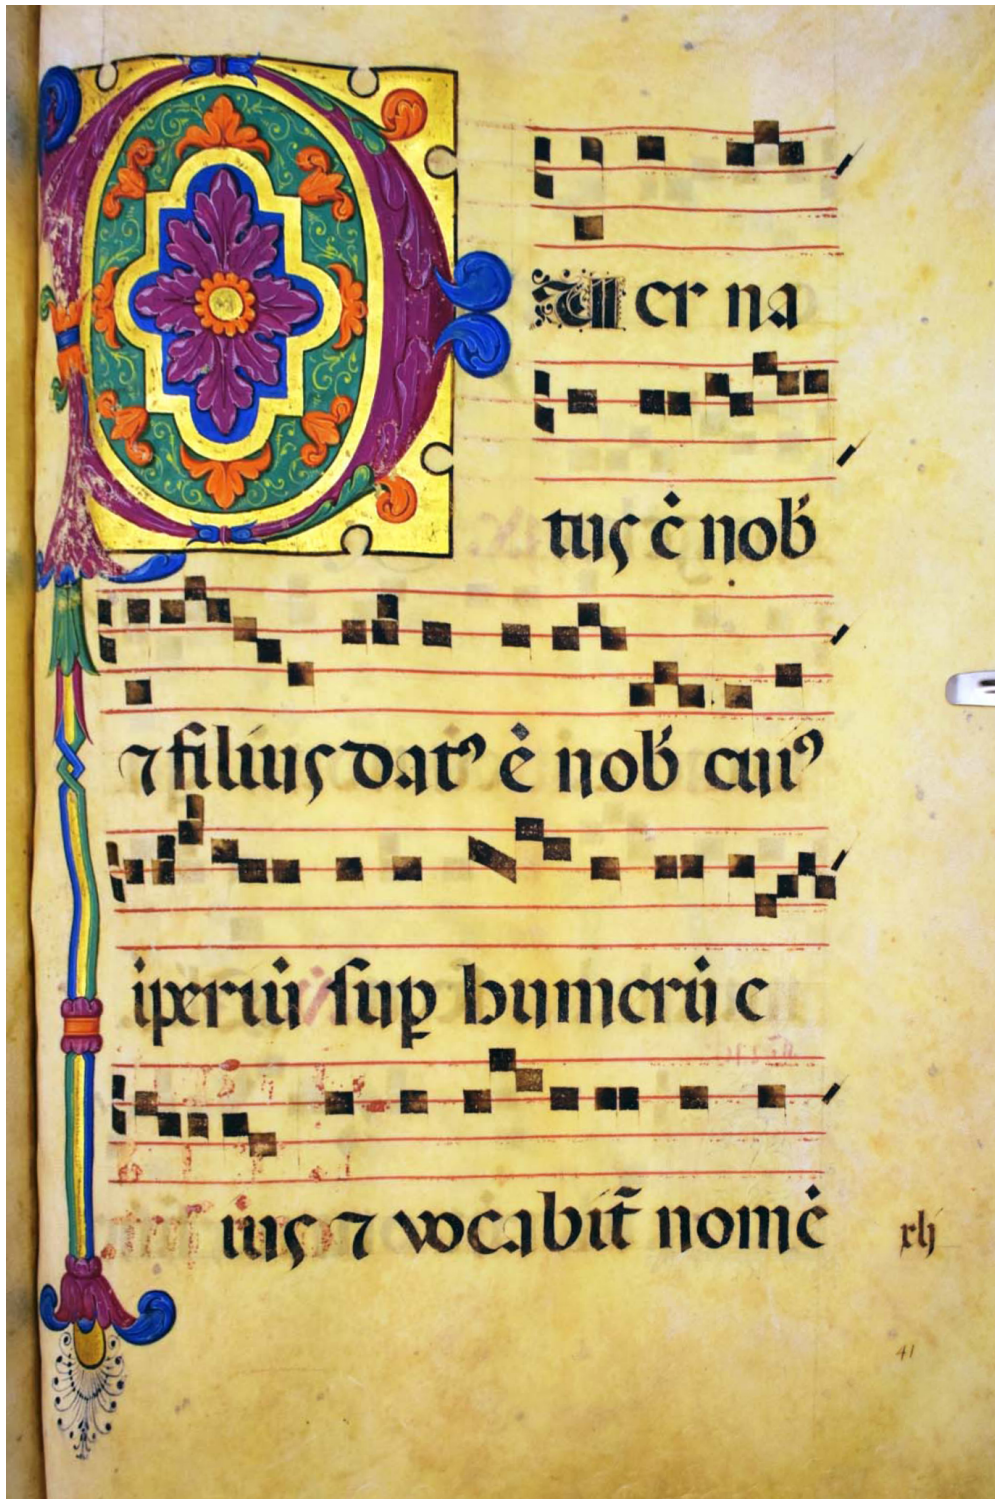 PUer na
tus ē nob̄
⁊ filius datꝰ ē nob̄ cuiꝰ
īperiū sup humerū e
ius ⁊ vocabit̄ nomē
xlj
41